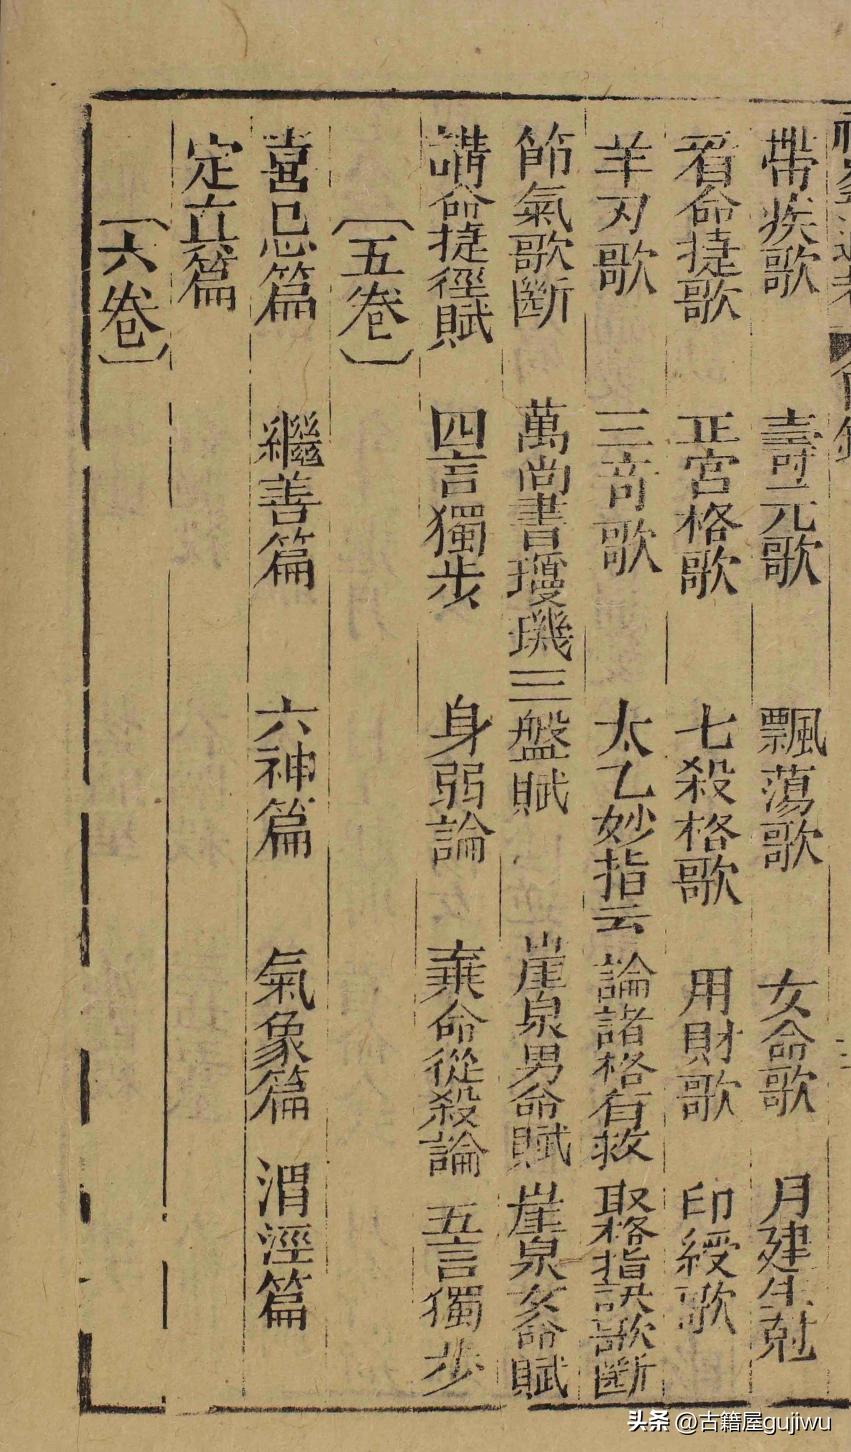 帶疾歌 壽元歌 飄蕩歌 女命歌 月建生尅
看命捷歌 正宮格歌 七殺格歌 用財歌 印綬歌
羊刃歌 三竒歌 太乙妙指云 論諸格有救 取格指訣歌斷
節氣歌斷 萬尚書璚璣三盤賦 崖泉男命賦 崖泉女命賦
講命捷徑賦 四言獨步 身弱論 棄命從殺論 五言獨步
〔五卷〕
喜忌篇 繼善篇 六神篇 氣象篇 渭涇篇
定真篇
〔六卷〕
头条 @古籍屋gujiwu